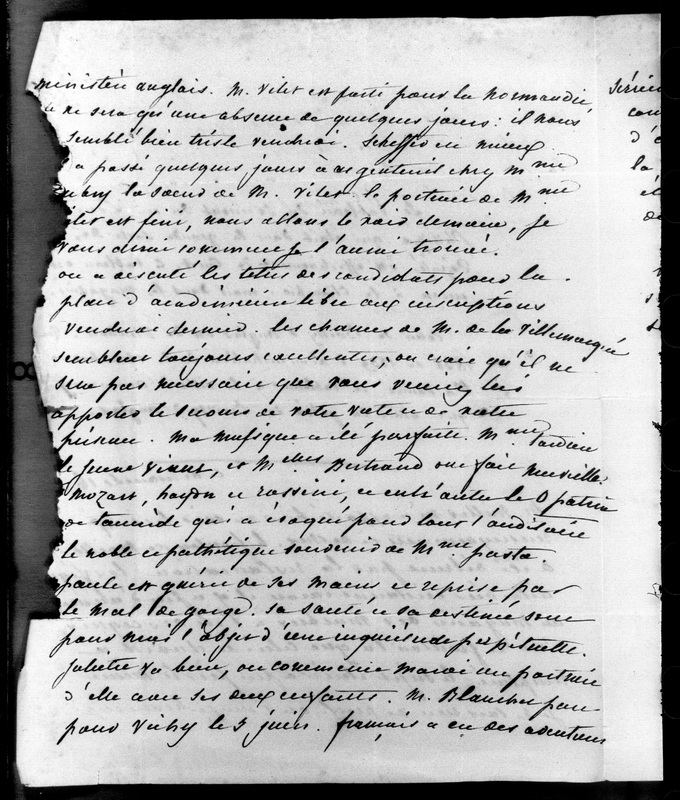 ministère anglais. M. Vitet est parti pour la Normandie,
ce ne sera qu'une absence de quelques jours : il nous
semble bien triste vendredi. Scheffer est mieux.
a passé quelques jours à argenteuil chez Mme
aubry la soeur de M. Vitet. le portrait de Mme
vitet est fini, nous allons le voir demain, je
vous dirai comment je l'aurai trouvé.
on a discuté les titres des candidats pour la
place d'académicien libre aux inscriptions
vendredi dernier. les chances de M. de la Villemarqué
semblent toujours excellentes, on croit qu'il ne
sera pas nécessaire que vous veniez lui
apporter le secours de votre vote et de votre
présence. Ma musique a été parfaite. Mme tardieu
le jeune Viault, et Mlles Bertrand ont fait merveille.
Mozart, haydn et rossini, et entr'autre le O patria
de tancrède qui a évoqué pour tout l'auditoire
le noble et pathétique souvenir de Mme pasta.
paule est guérie de ses mains et reprise par
le mal de gorge. sa santé et sa destinée sont
pour moi l'objet d'une inquiétude perpétuelle.
Juliette va bien, on commence mardi un portrait
d'elle avec ses deux enfants. M. Blanche part
pour Vichy le 3 juin. français a eu des aventures